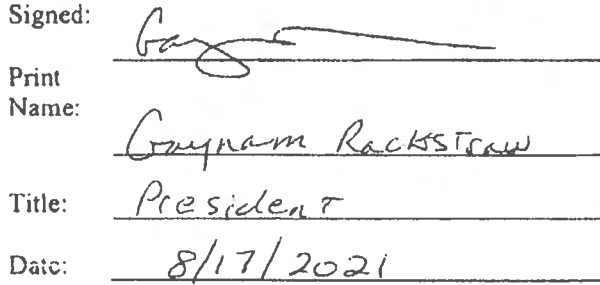 Signed:
Print
Name: Gaynam Rackstraw
Title: President
Date: 8/17/2021